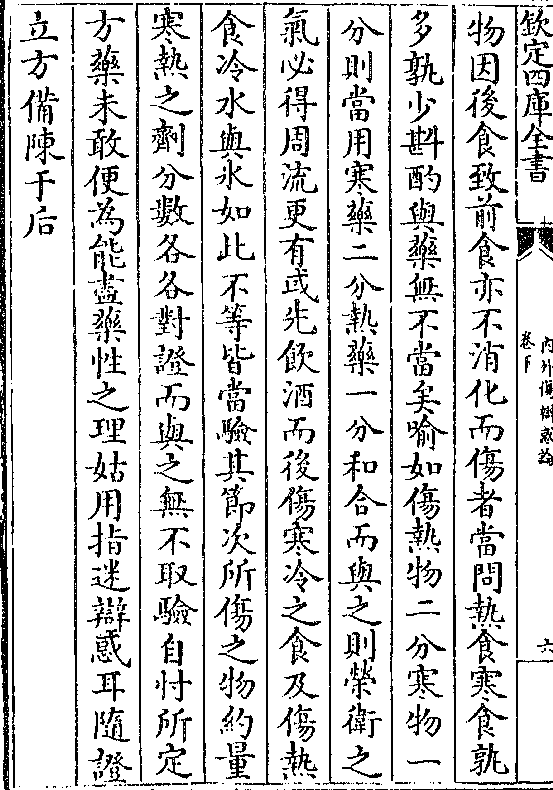 欽定四庫全書
內外傷辯惑論
卷下
六
物因後食致前食亦不消化而傷者當問熱食寒食孰
多孰少斟酌與藥無不當矣喻如傷熱物二分寒物一
分則當用寒藥二分熱藥一分和合而與之則榮衛之
氣必得周流更有或先飲酒而後傷寒冷之食及傷熱
食冷水與氷如此不等皆當驗其節次所傷之物約量
寒熱之劑分數各各對證而與之無不取驗自忖所定
方藥未敢便為能盡藥性之理姑用指迷辯惑耳隨證
立方備陳于后